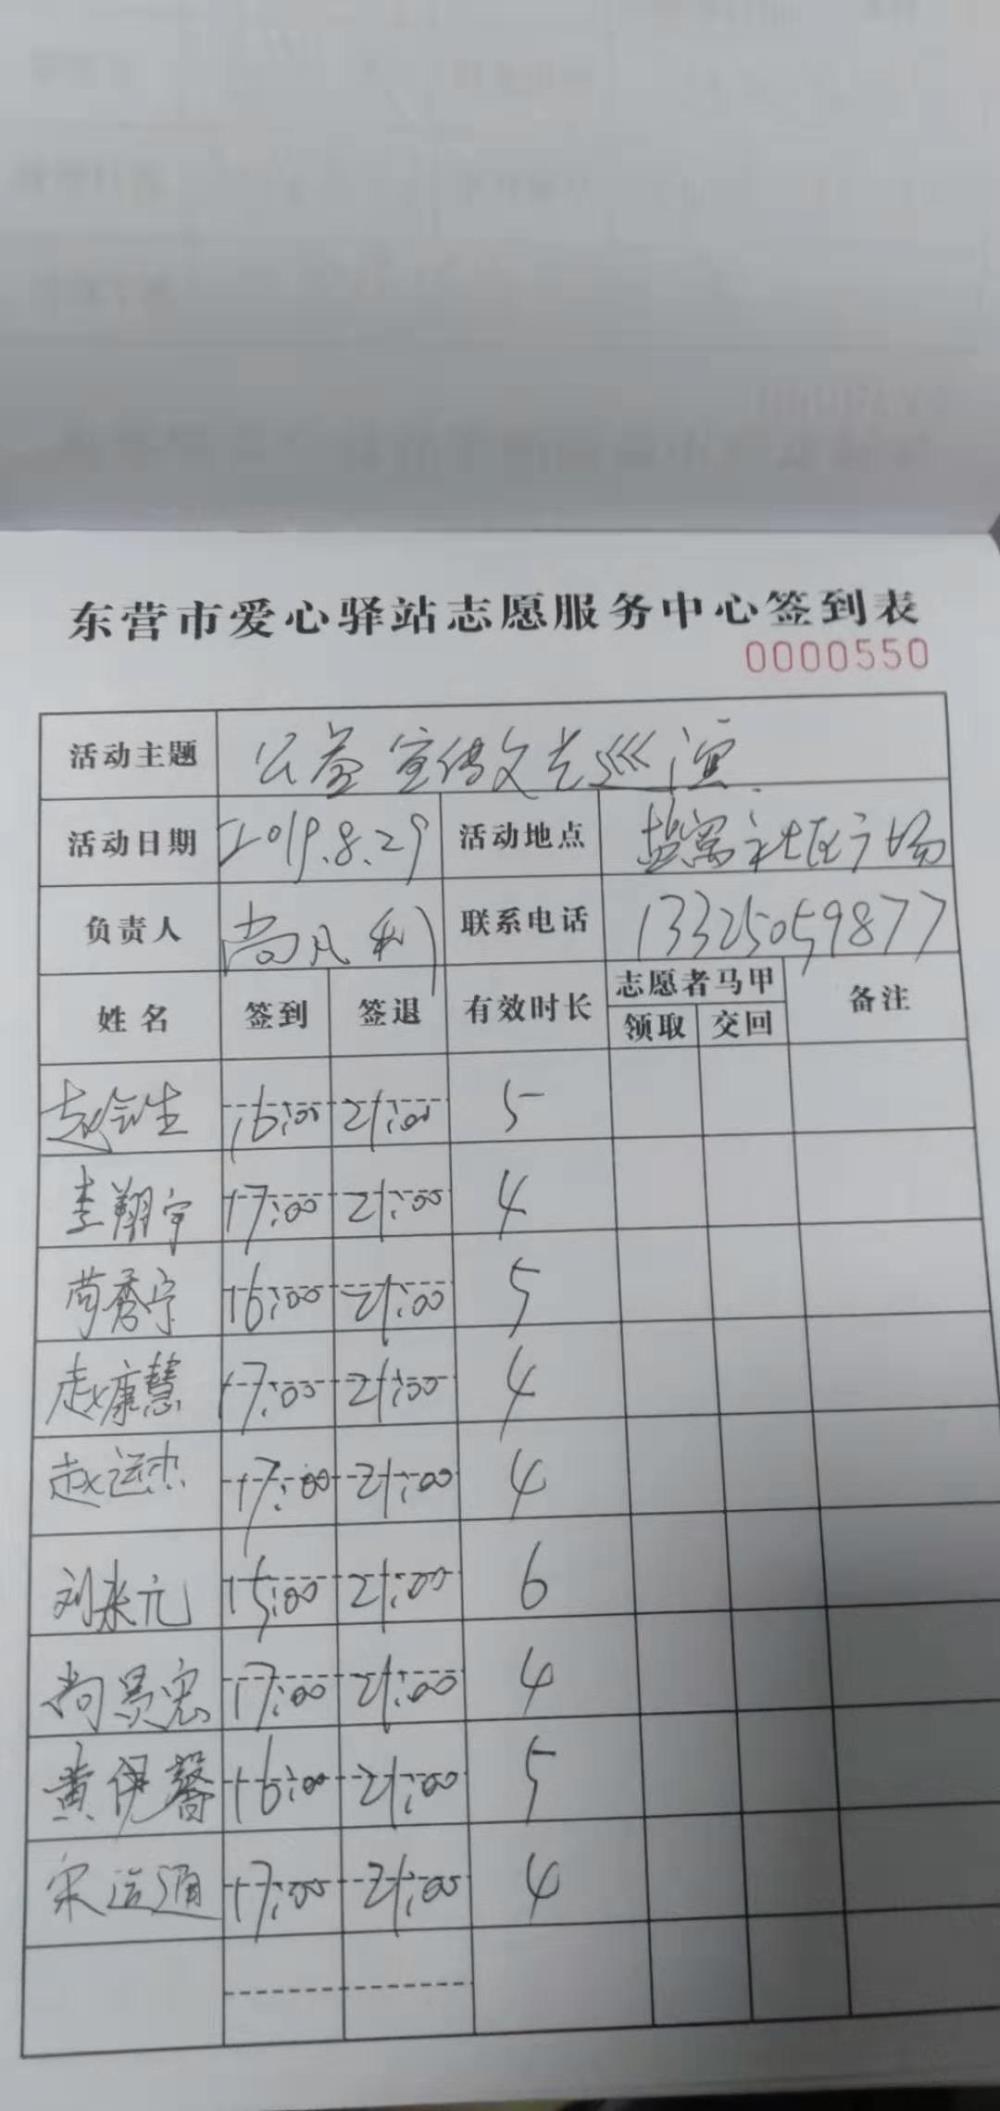 东营市爱心驿站志愿服务中心签到表
0000550
活动主题 公益宣传文艺巡演
活动日期 2019.8.29 活动地点 盐窝社区广场
负责人 尚凡利 联系电话 13325059877
姓名 签到 签退 有效时长 志愿者马甲 备注
领取 交回
赵会生 16:00 21:00 5
李翔宇 17:00 21:00 4
苟秀宁 16:00 21:00 5
赵康慧 17:00 21:00 4
赵运杰 17:00 21:00 4
刘来元 15:00 21:00 6
尚景宏 17:00 21:00 4
黄伊馨 16:00 21:00 5
宋运通 17:00 21:00 4